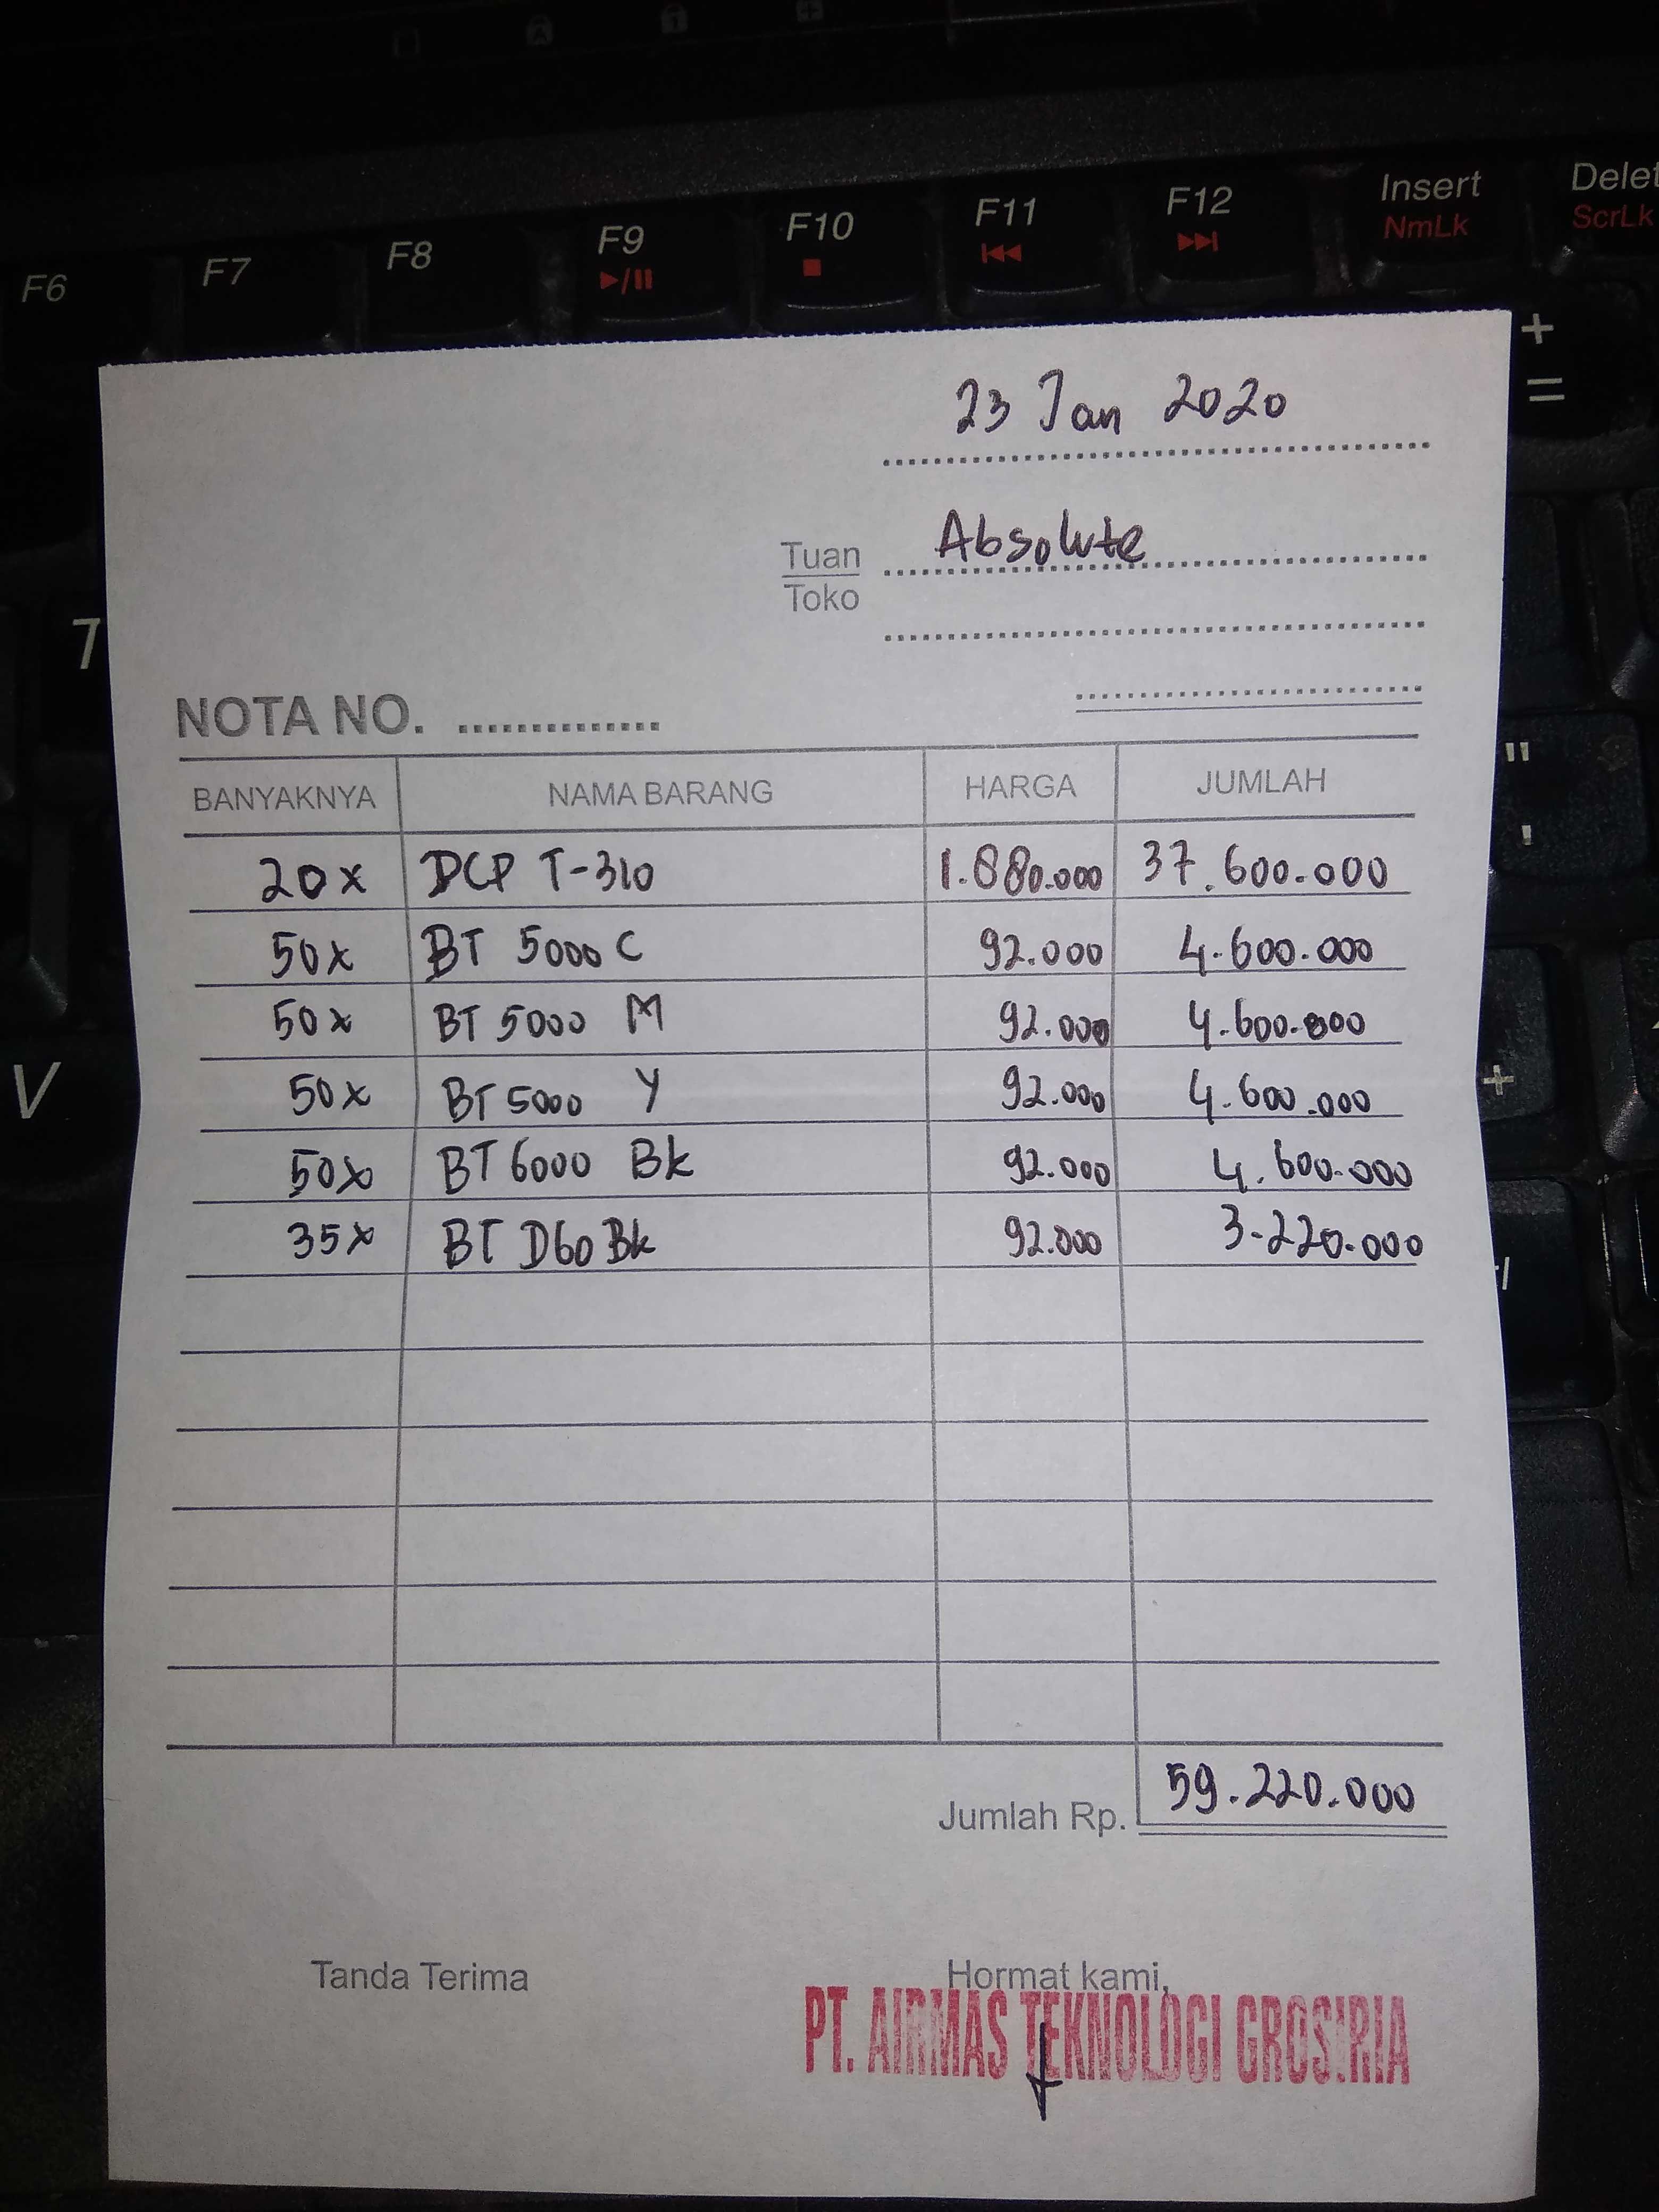 F6 F7 F8 F9 F10 F11 F12 Insert Delet
NmLk ScrLk
+
=
23 Jan 2020
Tuan Absolute
Toko
7
NOTA NO.
"
'
BANYAKNYA NAMA BARANG HARGA JUMLAH
20x DCP T-310 1.880.000 37.600.000
50x BT 5000 C 92.000 4.600.000
50x BT 5000 M 92.000 4.600.000
V
50x BT 5000 Y 92.000 4.600.000
50x BT 6000 Bk 92.000 4.600.000
35x BT D60 Bk 92.000 3.220.000
Jumlah Rp. 59.220.000
Tanda Terima Hormat kami,
PT. AIRMAS TEKNOLOGI GROSIRIA